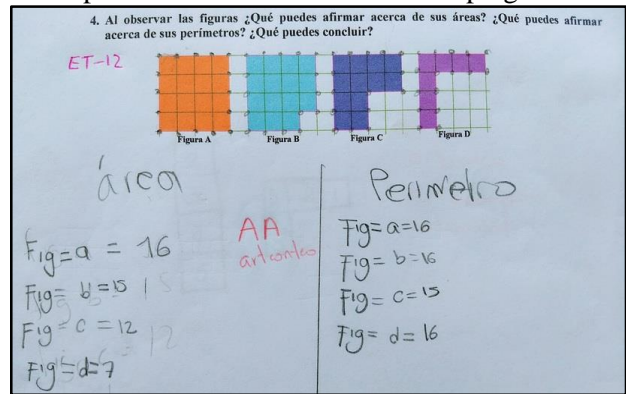 4. Al observar las figuras ¿Qué puedes afirmar acerca de sus áreas? ¿Qué puedes afirmar
acerca de sus perímetros? ¿Qué puedes concluir?
ET-12
Figura A
Figura B
Figura C
Figura D
área
Fig=a = 16
Fig= b=15 15
Fig=c = 12 12
Fig=d=7
AA
Perimetro
Fig=a=16
Fig= b=16
Fig= c=15
Fig= d=16